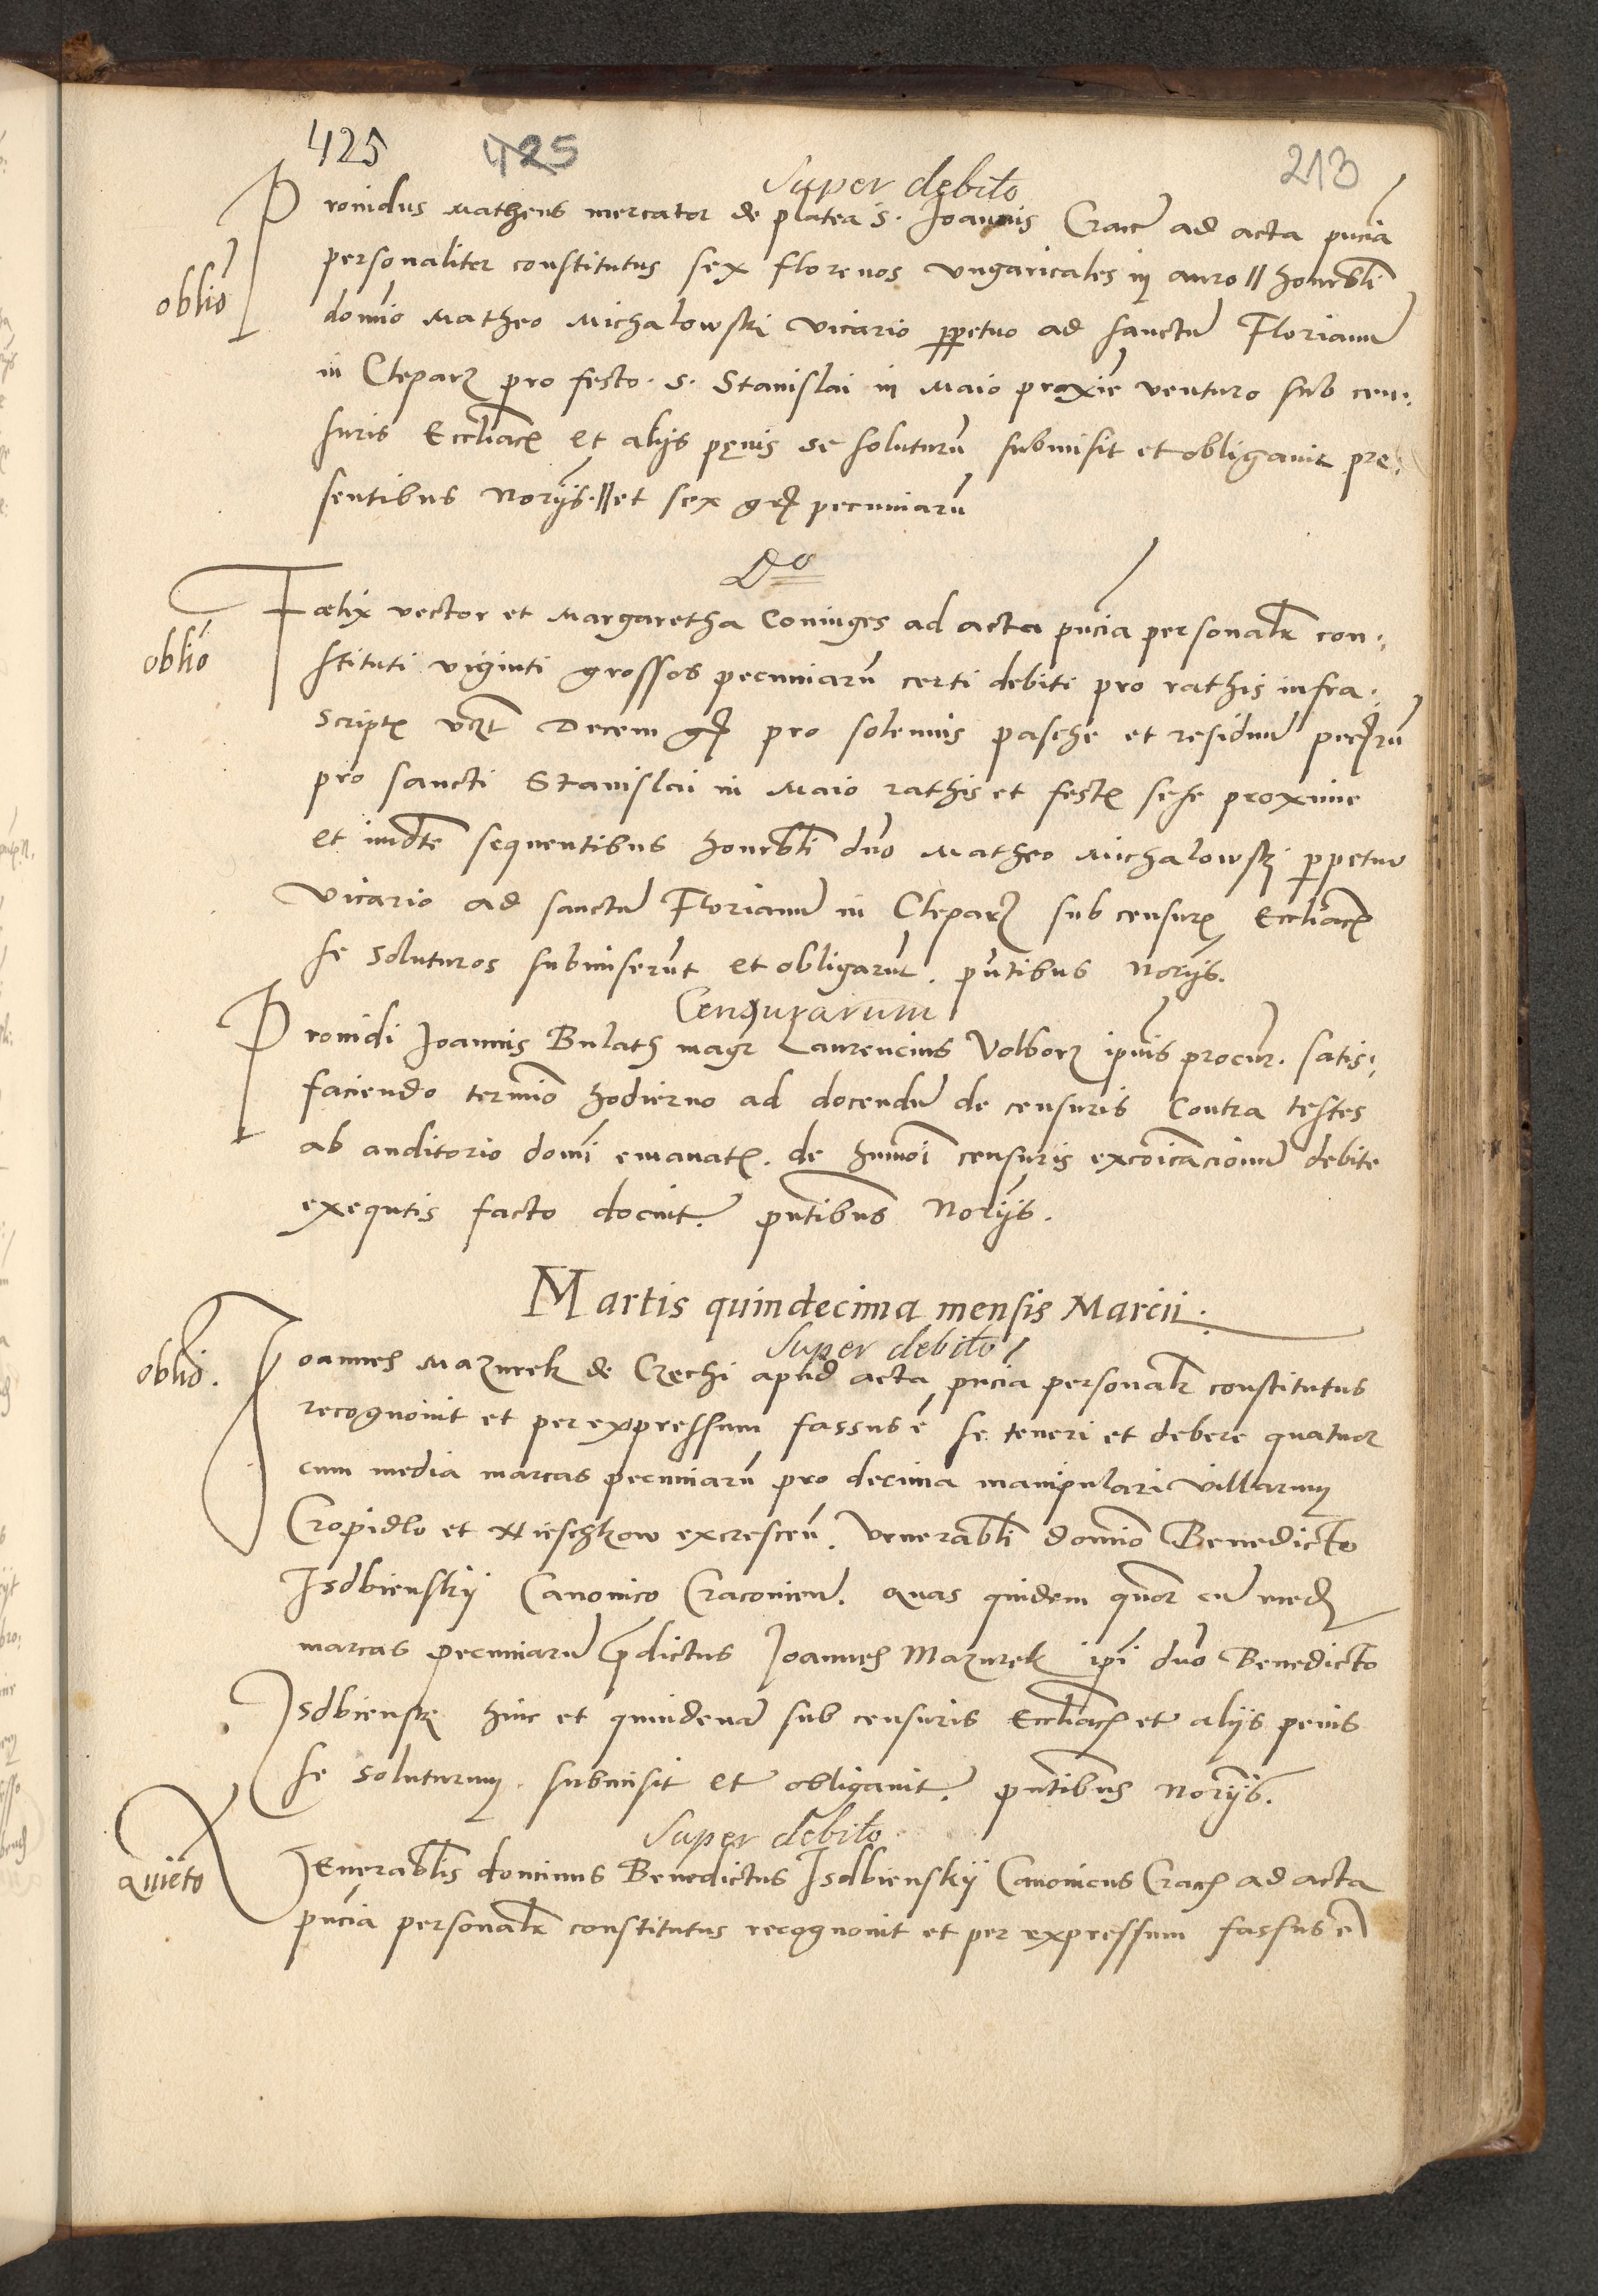 425 425 213
Super debito
Providus Matheus mercator de platea S. Joannis Crac ad acta pncia
oblio
personaliter constitutus sex florenos vngaricales in auro || honorbli
domio Matheo Michalowski vicario ppetuo ad sanctu Florianu
in Cleparz pro festo S. Stanislai in Maio proxie venturo sub cen:
suris Eccliacz et alijs penis se soluturu submisit et obligavit pre:
sentibus Norijs. || et sex gr pecuniaru
Do
Faelix vector et Margaretha Coniuges ad acta pncia personalr con:
oblio
stituti viginti grossos pecuniaru certi debiti pro rathis infra:
scriptz vczt Decem gr pro solemnis pasche et residuu peccru
pro sancti Stanislai in Maio rathis et festz sese proxime
et imdte sequentibus honorbli dno Matheo Michalowski ppetuo
vicario ad sanctu Florianu in Cleparz sub censurz Eccliacz
se soluturos submiserut et obligarut. pntibus Norijs.
Censurarum
Providi Joannis Bulath magr Laurencius Volborz ipius procur. satis:
faciendo termio hodierno ad docendu de censuris Contra testes
ab auditorio domi emanatz. de humoi censuris excoicacionu debite
exequtis facto docuit. pntibus Norijs.
Martis quindecima mensis Marcii.
Super debito
oblio.
Joannes Mazurek de Czechi apud acta pncia personalr constitutus
recognovit et per expressum fassus e se teneri et debere quatuor
cum media marcas pecuniaru pro decima manipulari villarum
Cropidlo et Nieschkow excrescen. Venerabli domio Benedicto
Isdbienskij Canonico Cracovien. quas quidem quor cu med
marcas pecuniaru pdictus Joannes Mazurek ipi dno Benedicto
Isdbiensk hinc et quindena sub censuris Eccliacz et alijs penis
se soluturum submisit et obligavit. pntibus Norijs.
Super debito
quieto
Venerablis dominus Benedictus Isdbienskij Canonicus Crac ad acta
pncia personalr constitutus recognovit et per expressum fassus e